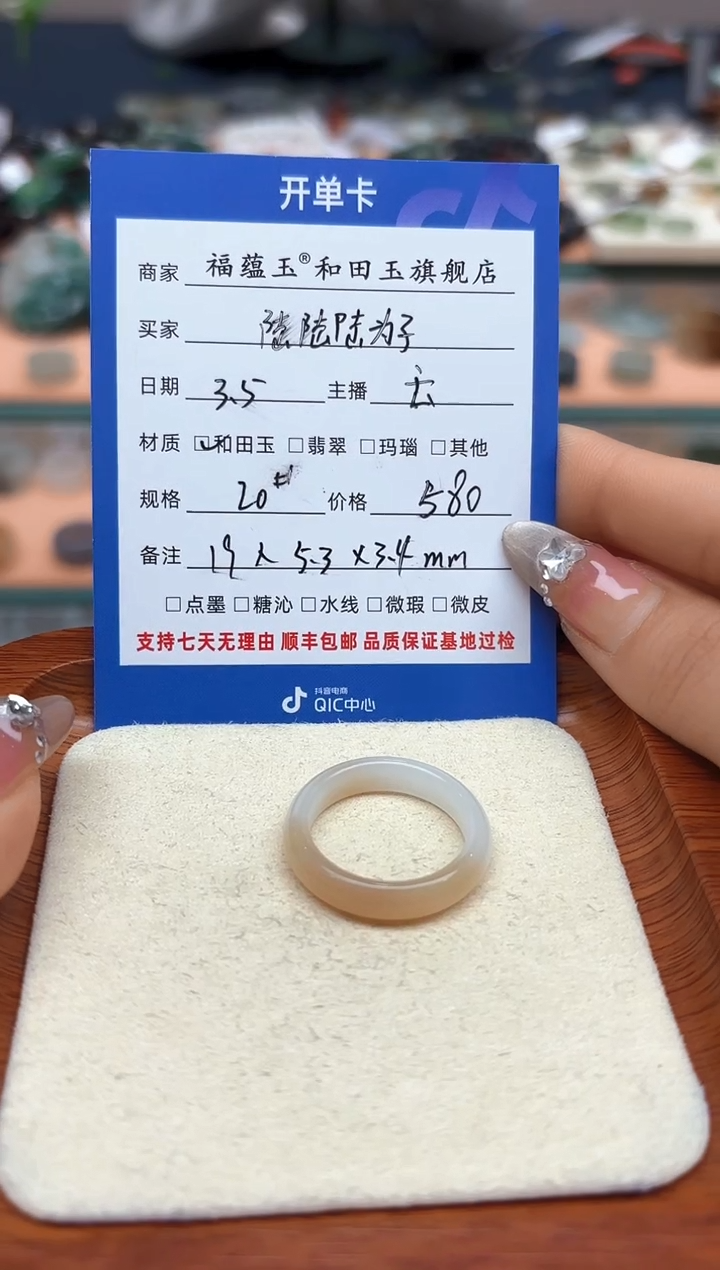 开单卡
商家 福蕴玉®和田玉旗舰店
买家 陆陆为子
日期 3.5 主播
材质 ☑和田玉 □翡翠 □玛瑙 □其他
规格 20# 价格 580
备注 19 5.3×3.4mm
□点墨 □糖沁 □水线 □微瑕 □微皮
支持七天无理由 顺丰包邮 品质保证基地过检
抖音电商
QIC中心